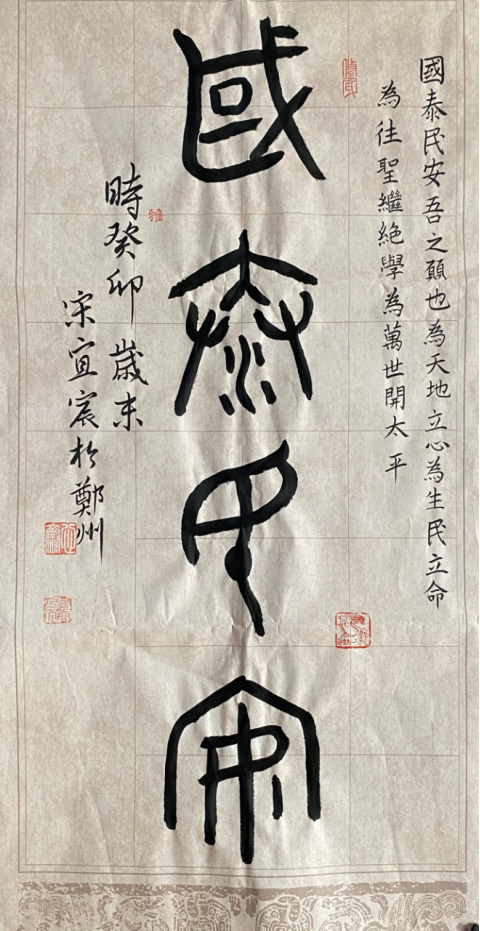 國泰民安吾之願也為天地立心為生民立命
為往聖繼絕學為萬世開太平
國泰民安
時癸卯歲末
宋宜宸於鄭州